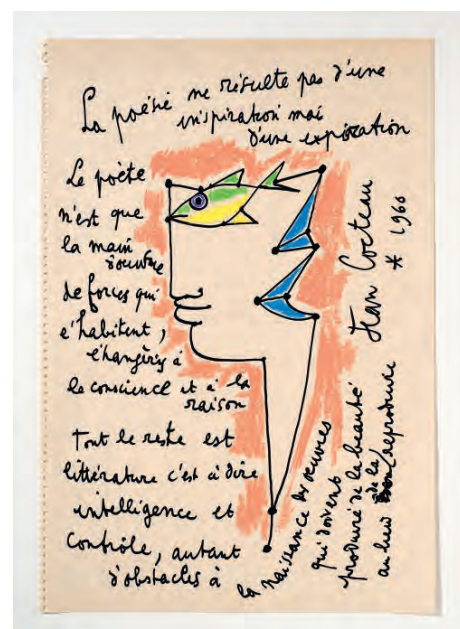 La poésie ne résulte pas d'une
inspiration mai
d'une expiration
Le poète
n'est que
la main
d'œuvre
de forces qui
l'habitent,
étrangères à
la conscience et à la
raison
Tout le reste est
littérature c'est à dire
intelligence et
contrôle, autant
d'obstacles à
la naissance des oeuvres
qui doivent
produire de la beauté
au lieu de la reproduire
Jean Cocteau
* 1960